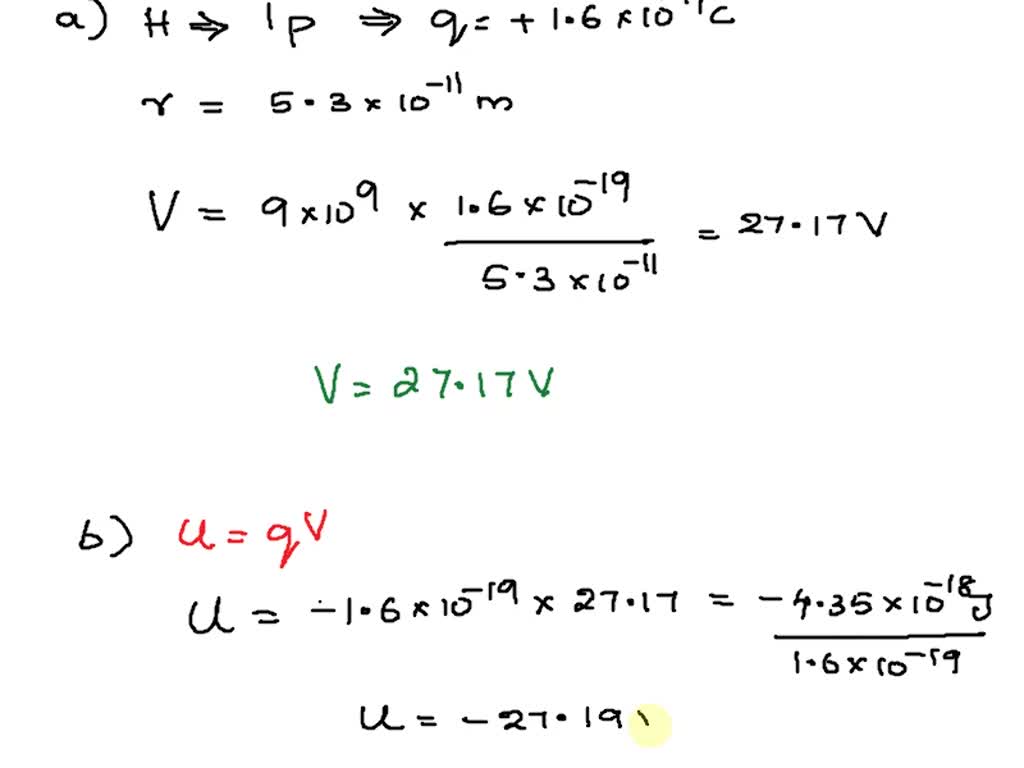 a) H ⇒ 1p ⇒ q = + 1.6 × 10 C
r = 5.3 × 10⁻¹¹ m
V = 9 × 10⁹ × 1.6 × 10⁻¹⁹ / 5.3 × 10⁻¹¹ = 27.17 V
V = 27.17 V
b) U = qV
U = -1.6 × 10⁻¹⁹ × 27.17 = -4.35 × 10⁻¹⁸ J / 1.6 × 10⁻¹⁹
U = -27.19